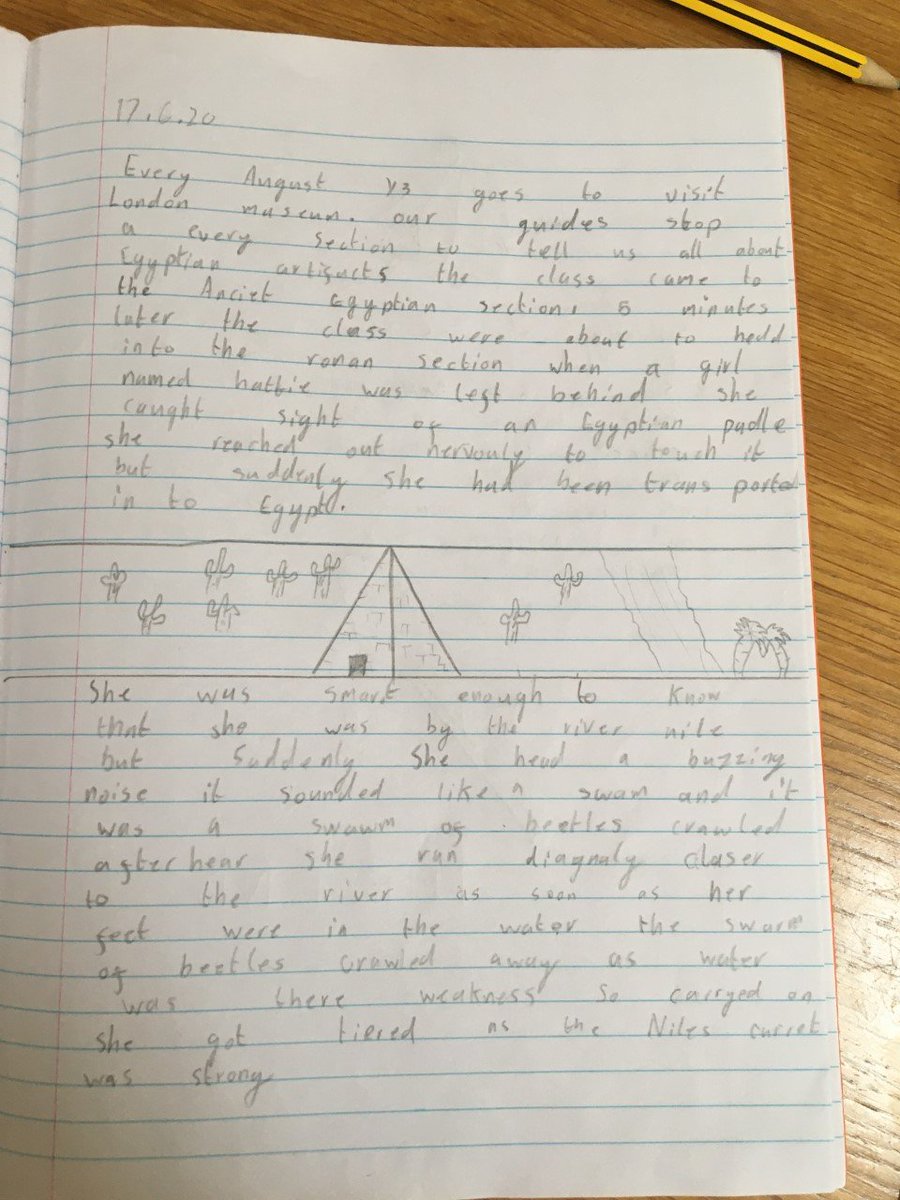 17.6.20
Every August Y3 goes to visit
London museum. our guides stop
a every section to tell us all about
Egyptian artifacts the class came to
the Anciet Egyptian section, 5 minutes
later the class were about to hedd
into the roman section when a girl
named hattie was left behind she
caught sight of an Egyptian padle
she reached out nervouly to touch it
but suddenly she had been trans ported
in to Egypt.
She was smart enough to know
that she was by the river nile
but Suddenly She head a buzzing
noise it sounded like a swam and it
was a swawm of beetles crawled
after hear she run diagnaly claser
to the river as soon as her
feet were in the water the swarm
of beetles crawled away as water
was there weakness so carryed on
she got tiered as the Niles curret
was strong